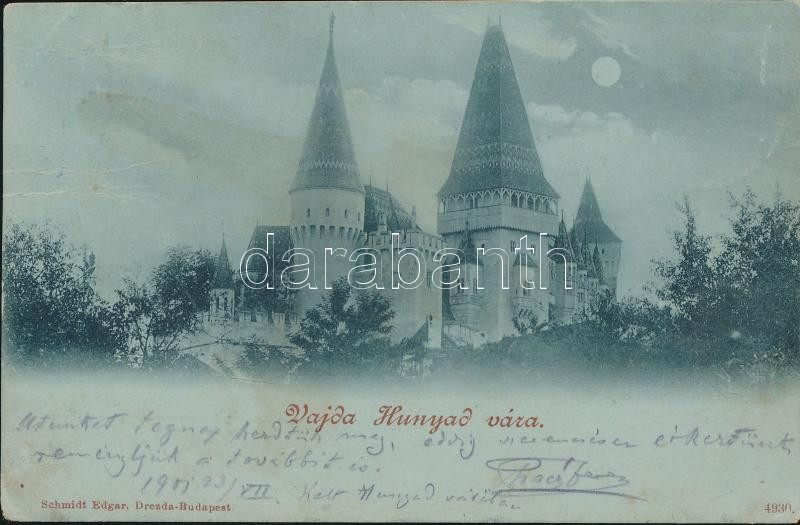 darabanth
Vajda Hunyad vára.
Utunkat tegnap kezdtük meg, eddig szerencsésen érkeztünk
reméljük a továbbit is.
1901 23/VII. Kelt Hunyad
Schmidt Edgar, Drezda-Budapest.
4930.